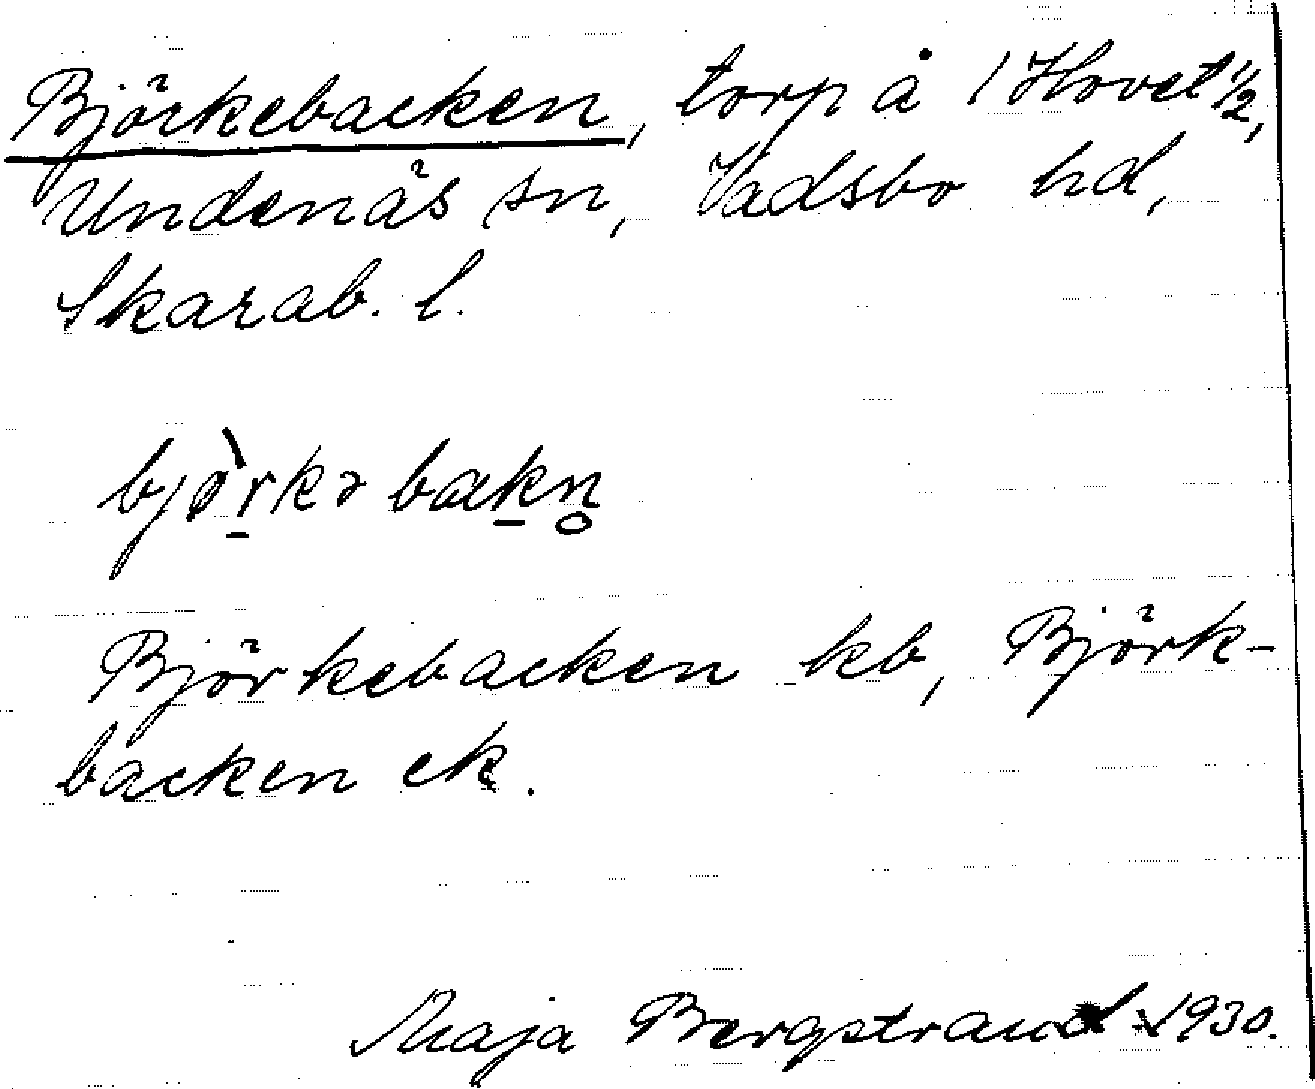 Björkebacken, torp å 1 Hovet 1/2,
Undenäs sn, Vadsbo hd,
Skarab. l.
bjö̀rkəbakn̥
Björkebacken kb, Björk-
backen ek.
Maja Bergstrand 1930.